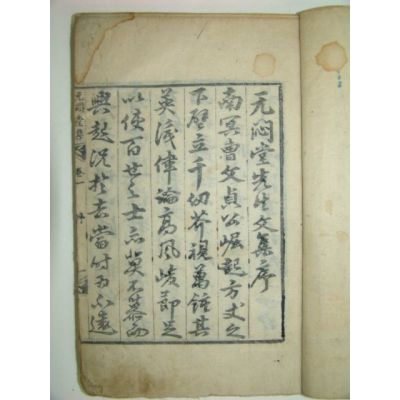 无悶堂先生文集序
南冥曺文貞公崛起方丈之
下壁立千仞芥視萬鍾其
英淺偉論高風峻節足
以使百世之士亦莫不慕而
興起況於去當時而不遠
无悶堂集 卷一 序